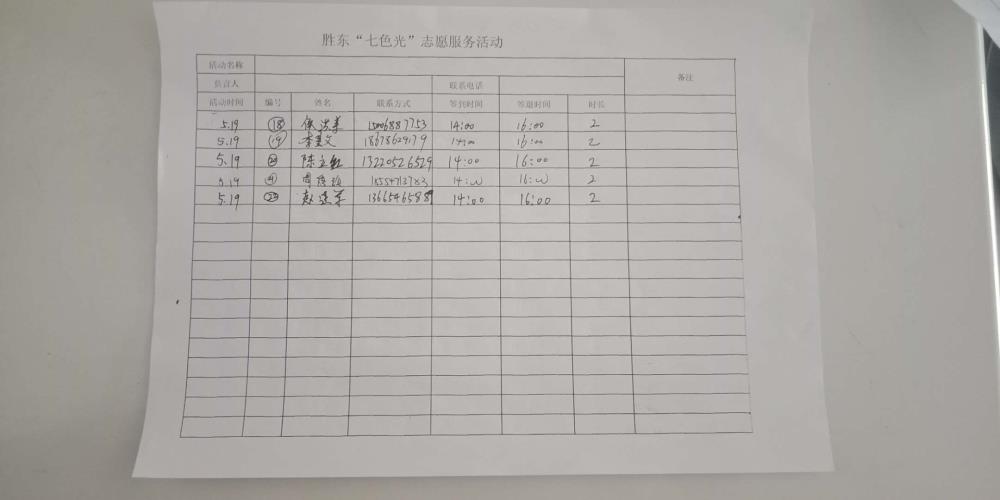 胜东“七色光”志愿服务活动
活动名称 备注
负责人 联系电话
活动时间 编号 姓名 联系方式 签到时间 签退时间 时长
5.19 18 15006887753 14:00 16:00 2
5.19 19 李美文 18678629179 14:00 16:00 2
5.19 20 陈立红 13220526529 14:00 16:00 2
5.19 21 14:00 16:00 2
5.19 22 赵连军 14:00 16:00 2